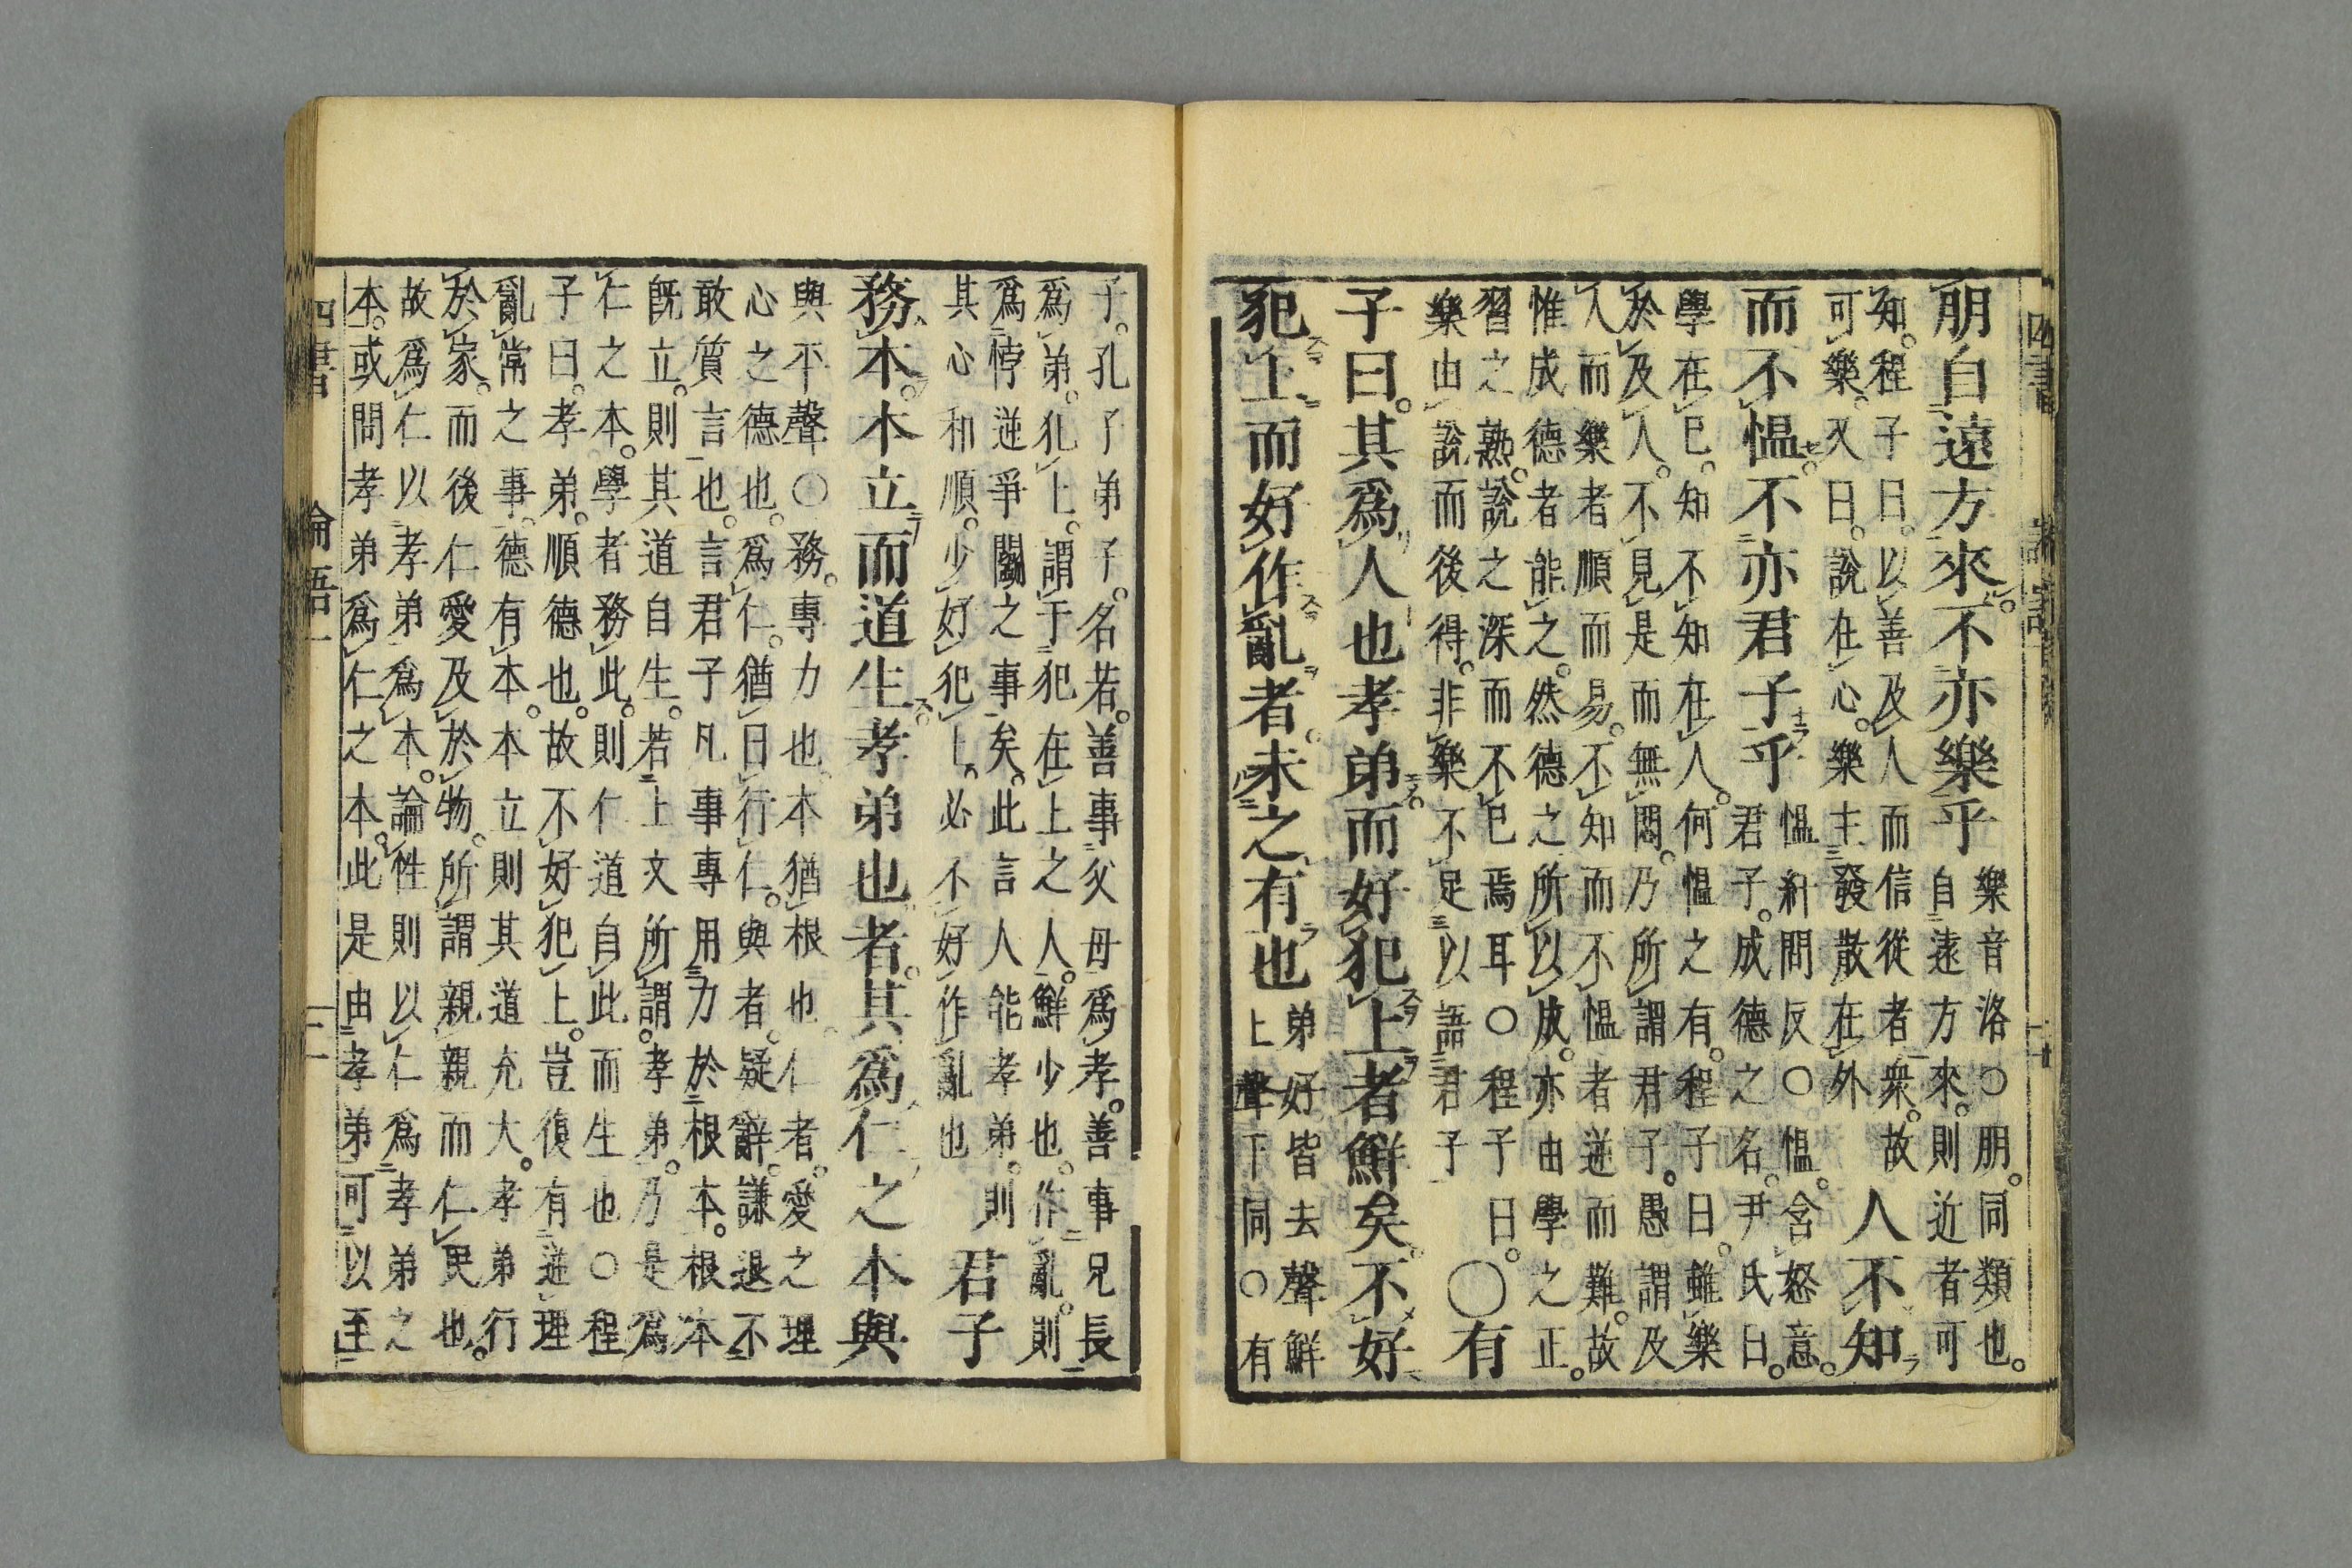 四書
朋自遠方來。不亦樂乎
樂音洛○朋。同類也。
自遠方來。則近者可
知。程子曰。以善及人而信從者衆。故
可樂。又曰。說在心。樂主發散在外
人不知
而不慍。不亦君子乎
慍紆問反○慍。含怒意。
君子。成德之名。尹氏曰。
學在己。知不知在人。何慍之有。程子曰。雖樂
於及人。不見是而無悶。乃所謂君子。愚謂及
人而樂者順而易。不知而不慍者逆而難。故
惟成德者能之。然德之所以成。亦由學之正。
習之熟。說之深而不已焉耳○程子曰。
樂由說而後得。非樂不足以語君子
○有
子曰。其爲人也孝弟。而好犯上者鮮矣。不好
犯上而好作亂者。未之有也
弟好。皆去聲鮮
上聲下同○有
子。孔子弟子。名若。善事父母爲孝。善事兄長
爲弟。犯上。謂干犯在上之人。鮮少也。作亂。則
爲悖逆爭鬭之事矣。此言人能孝弟。則
其心和順。少好犯上。必不好作亂也
君子
務本。本立而道生。孝弟也者。其爲仁之本與
與平聲○務。專力也。本猶根也。仁者。愛之理
心之德也。爲仁。猶曰行仁。與者。疑辭。謙退不
敢質言也。言君子凡事專用力於根本。根本
旣立。則其道自生。若上文所謂。孝弟。乃是爲
仁之本。學者務此。則仁道自此而生也○程
子曰。孝弟。順德也。故不好犯上。豈復有逆理
亂常之事。德有本。本立則其道充大。孝弟行
於家。而後仁愛及於物。所謂親親而仁民也。
故爲仁以孝弟爲本。論性則以仁爲孝弟之
本。或問孝弟爲仁之本。此是由孝弟可以至
四書 論語一